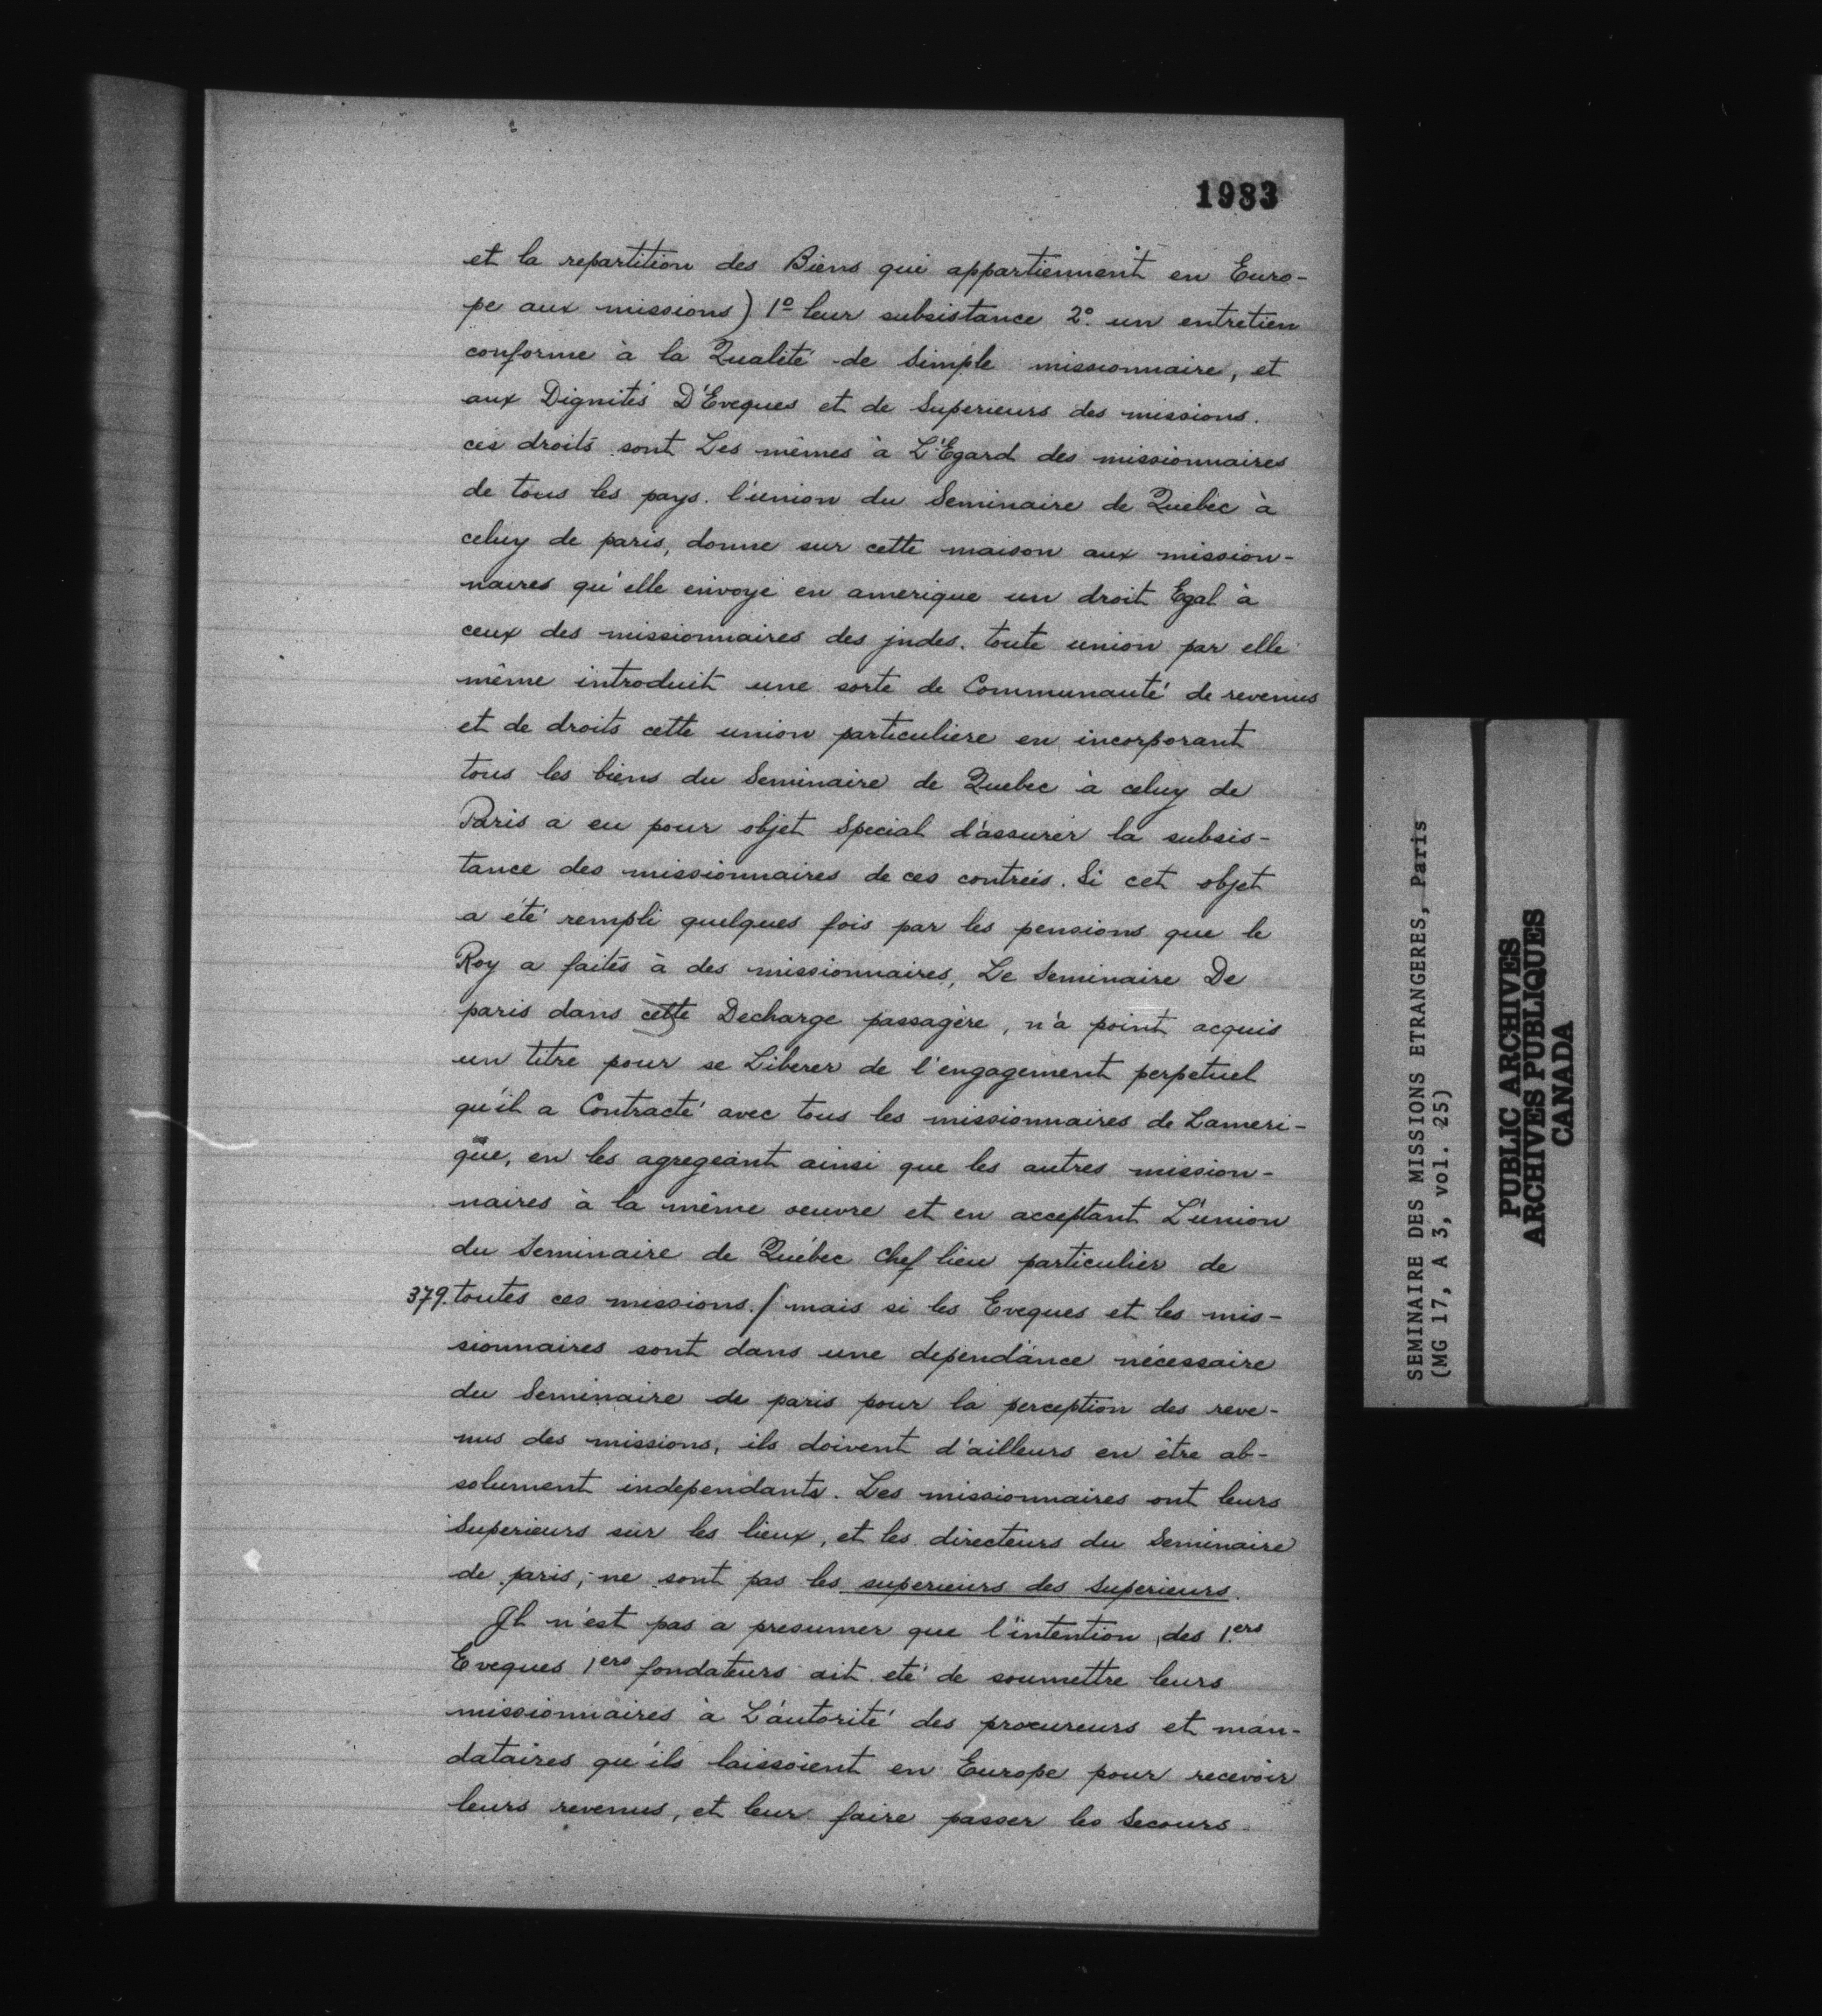 1983
et la repartition des Biens qui appartiennent en Euro-
pe aux missions) 1º leur subsistance 2º. un entretien
conforme à la Qualité de Simple missionnaire, et
aux Dignités D'Eveques et de Superieurs des missions.
ces droits sont Les mêmes à L'Egard des missionnaires
de tous les pays. l'union du Seminaire de Quebec à
celuy de paris, donne sur cette maison aux mission-
naires qu'elle envoye en amerique un droit Egal à
ceux des missionnaires des jndes. toute union par elle
même introduit une sorte de Communauté de revenus
et de droits cette union particuliere en incorporant
tous les biens du Seminaire de Quebec à celuy de
Paris a eu pour objet Special d'assurer la subsis-
tance des missionnaires de ces contrées. Si cet objet
a été rempli quelques fois par les pensions que le
Roy a faites à des missionnaires, Le Seminaire De
paris dans cette Decharge passagère, n'a point acquis
un titre pour se Liberer de l'engagement perpetuel
qu'il a Contracté avec tous les missionnaires de Lameri-
que, en les agregeant ainsi que les autres mission-
naires à la même oeuvre et en acceptant L'union
du Seminaire de Québec Chef lieu particulier de
379. toutes ces missions./ mais si les Eveques et les mis-
sionnaires sont dans une dependance nécessaire
du Seminaire de paris pour la perception des reve-
nus des missions, ils doivent d'ailleurs en être ab-
solument independants. Les missionnaires ont leurs
Superieurs sur les lieux, et les directeurs du Seminaire
de paris, ne sont pas les superieurs des Superieurs.
Jl n'est pas a presumer que l'intention des 1.ers
Eveques 1ers fondateurs ait eté de soumettre leurs
missionnaires à L'autorité des procureurs et man-
dataires qu'ils laissoient en Europe pour recevoir
leurs revenus, et leur faire passer les Secours.
SEMINAIRE DES MISSIONS ETRANGERES, Paris
(MG 17, A 3, vol. 25)
PUBLIC ARCHIVES
ARCHIVES PUBLIQUES
CANADA